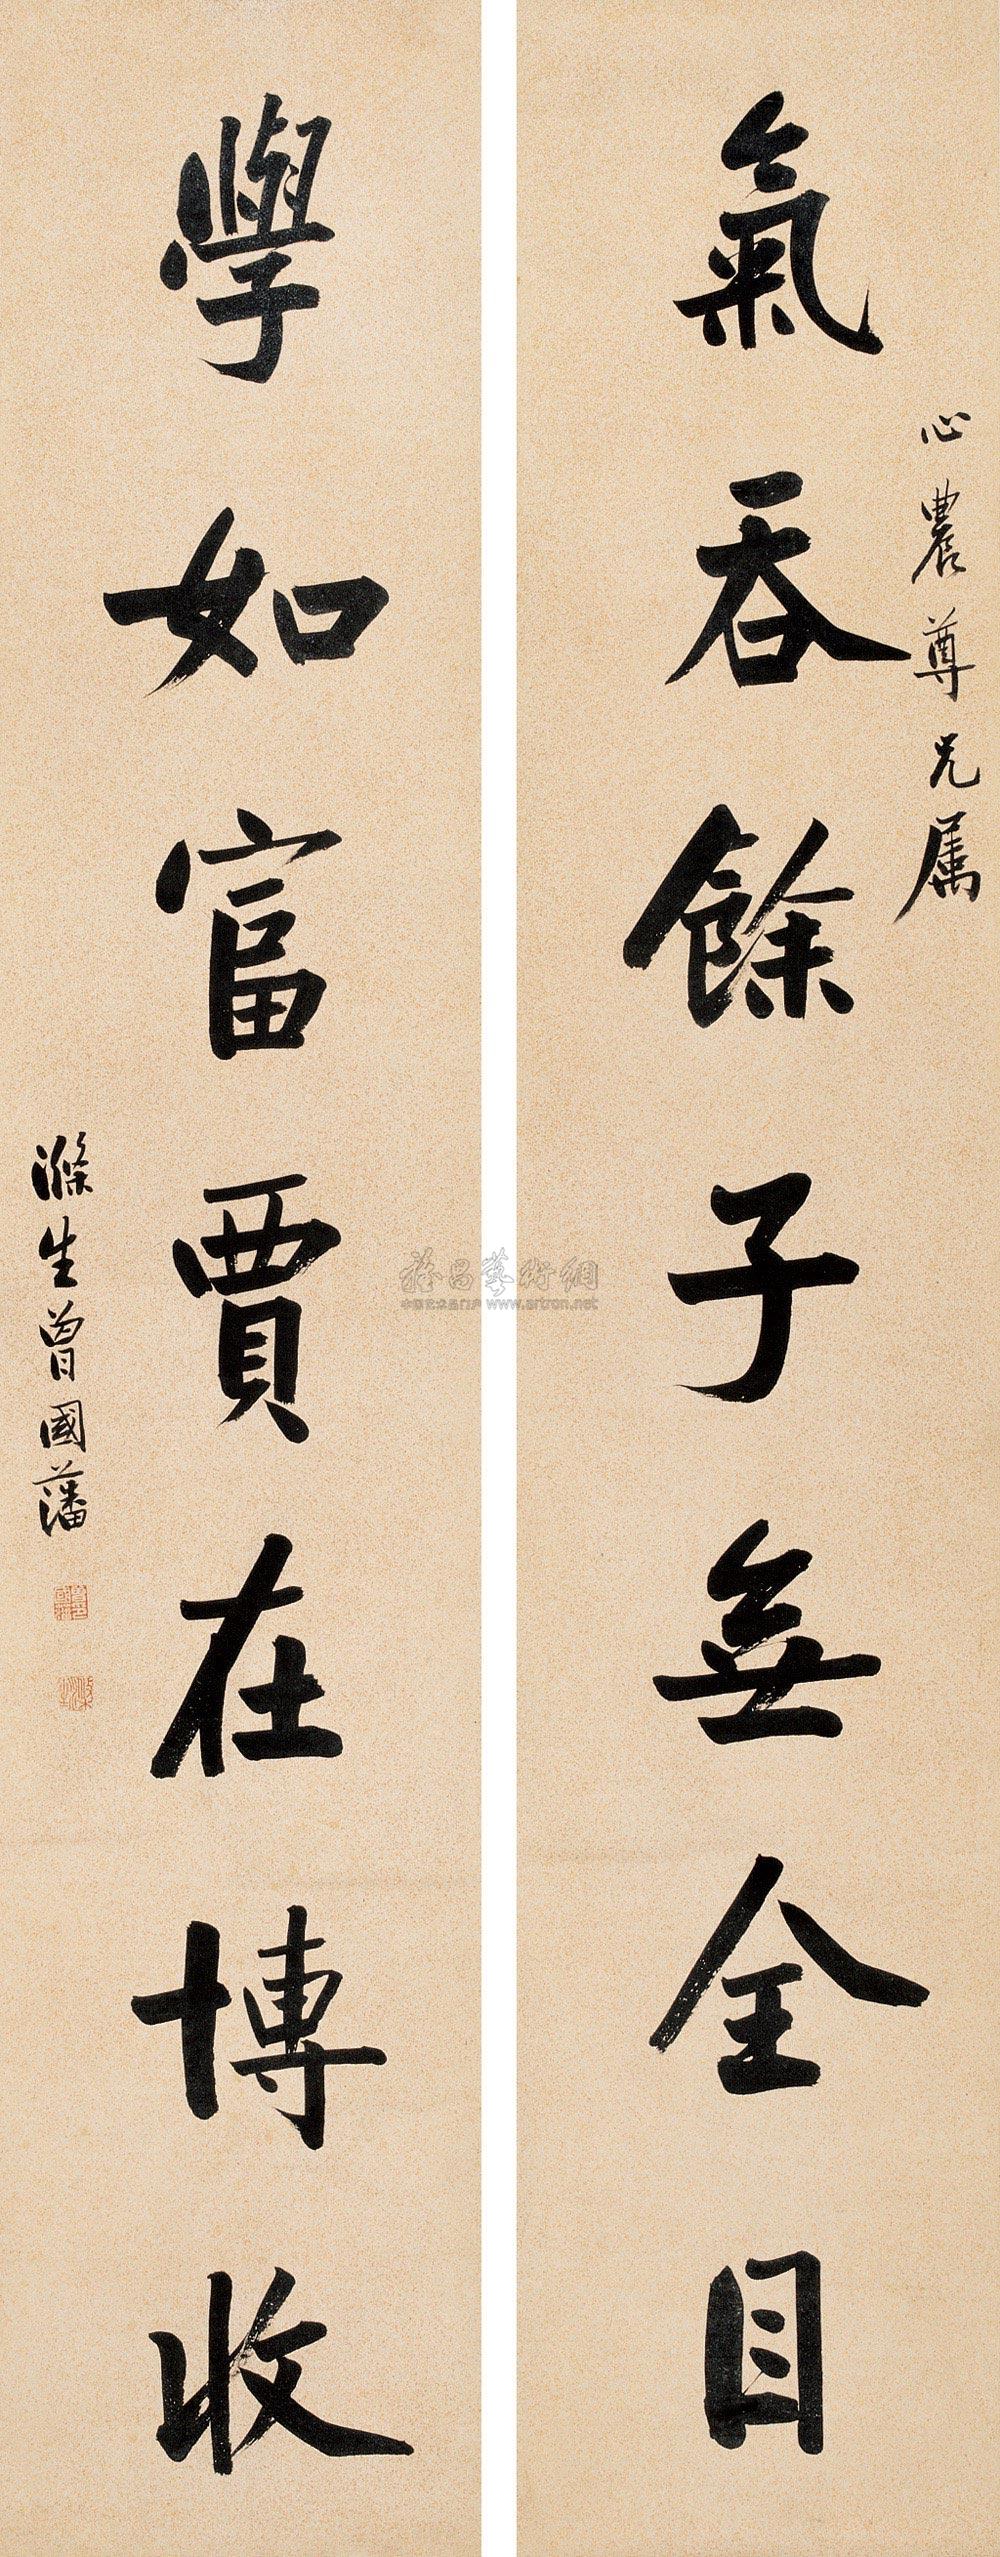 氣吞餘子無全目
心農尊兄属
學如富賈在博收
滌生曾國藩
雅昌藝術網
中国艺术品门户 www.artron.net